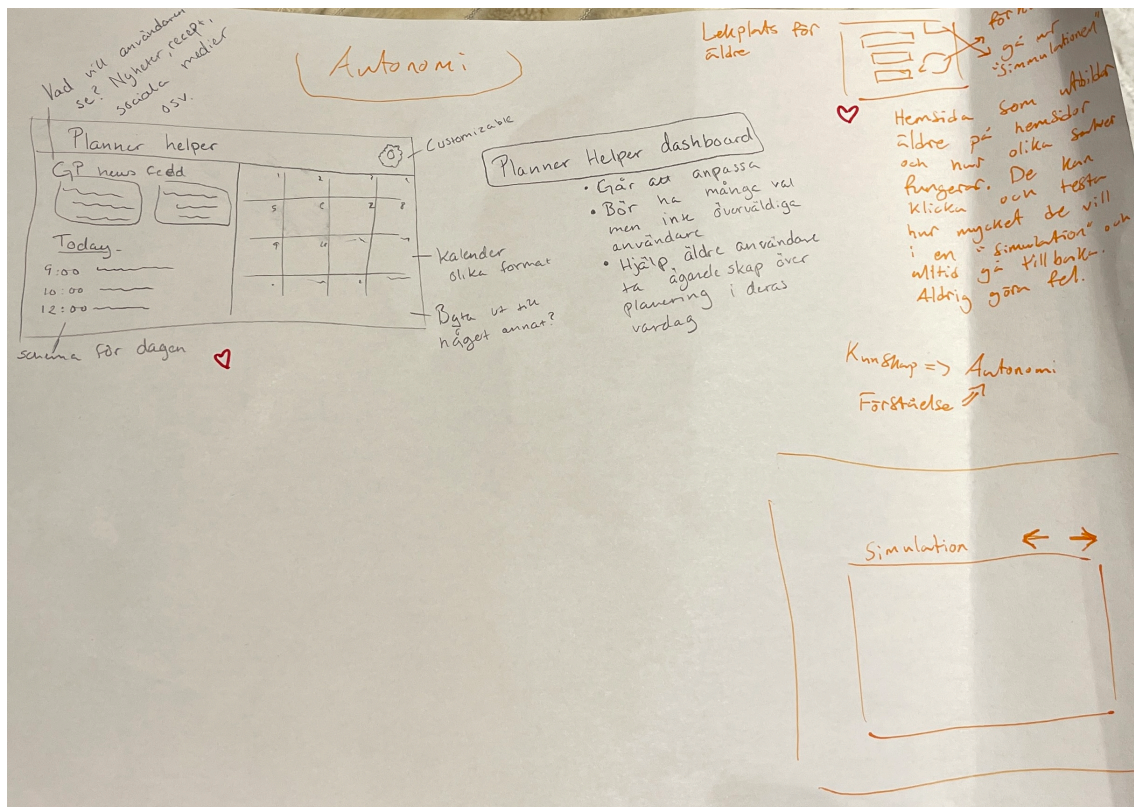 Autonomi
Vad vill användaren
se? Nyheter, recept,
sociala medier
osv.
Planner helper
Customizable
GP news
Today
9:00
10:00
12:00
schema för dagen
1 2
5
kalender
olika format
Byta ut till
något annat?
Planner Helper dashboard
• Går att anpassa
• Bör ha många val
men inte överväldiga
användare
• Hjälp äldre användare
ta ägandeskap över
planering i deras
vardag
Lekplats för
äldre
gå ur
"Simmulationen"
Hemsida som utbildar
äldre på hemsidor
och hur olika saker
fungerar. De kan
klicka och testa
hur mycket de vill
i en "simulation" och
alltid gå tillbaka.
Aldrig göra fel.
Kunskap => Autonomi
Förståelse
Simulation